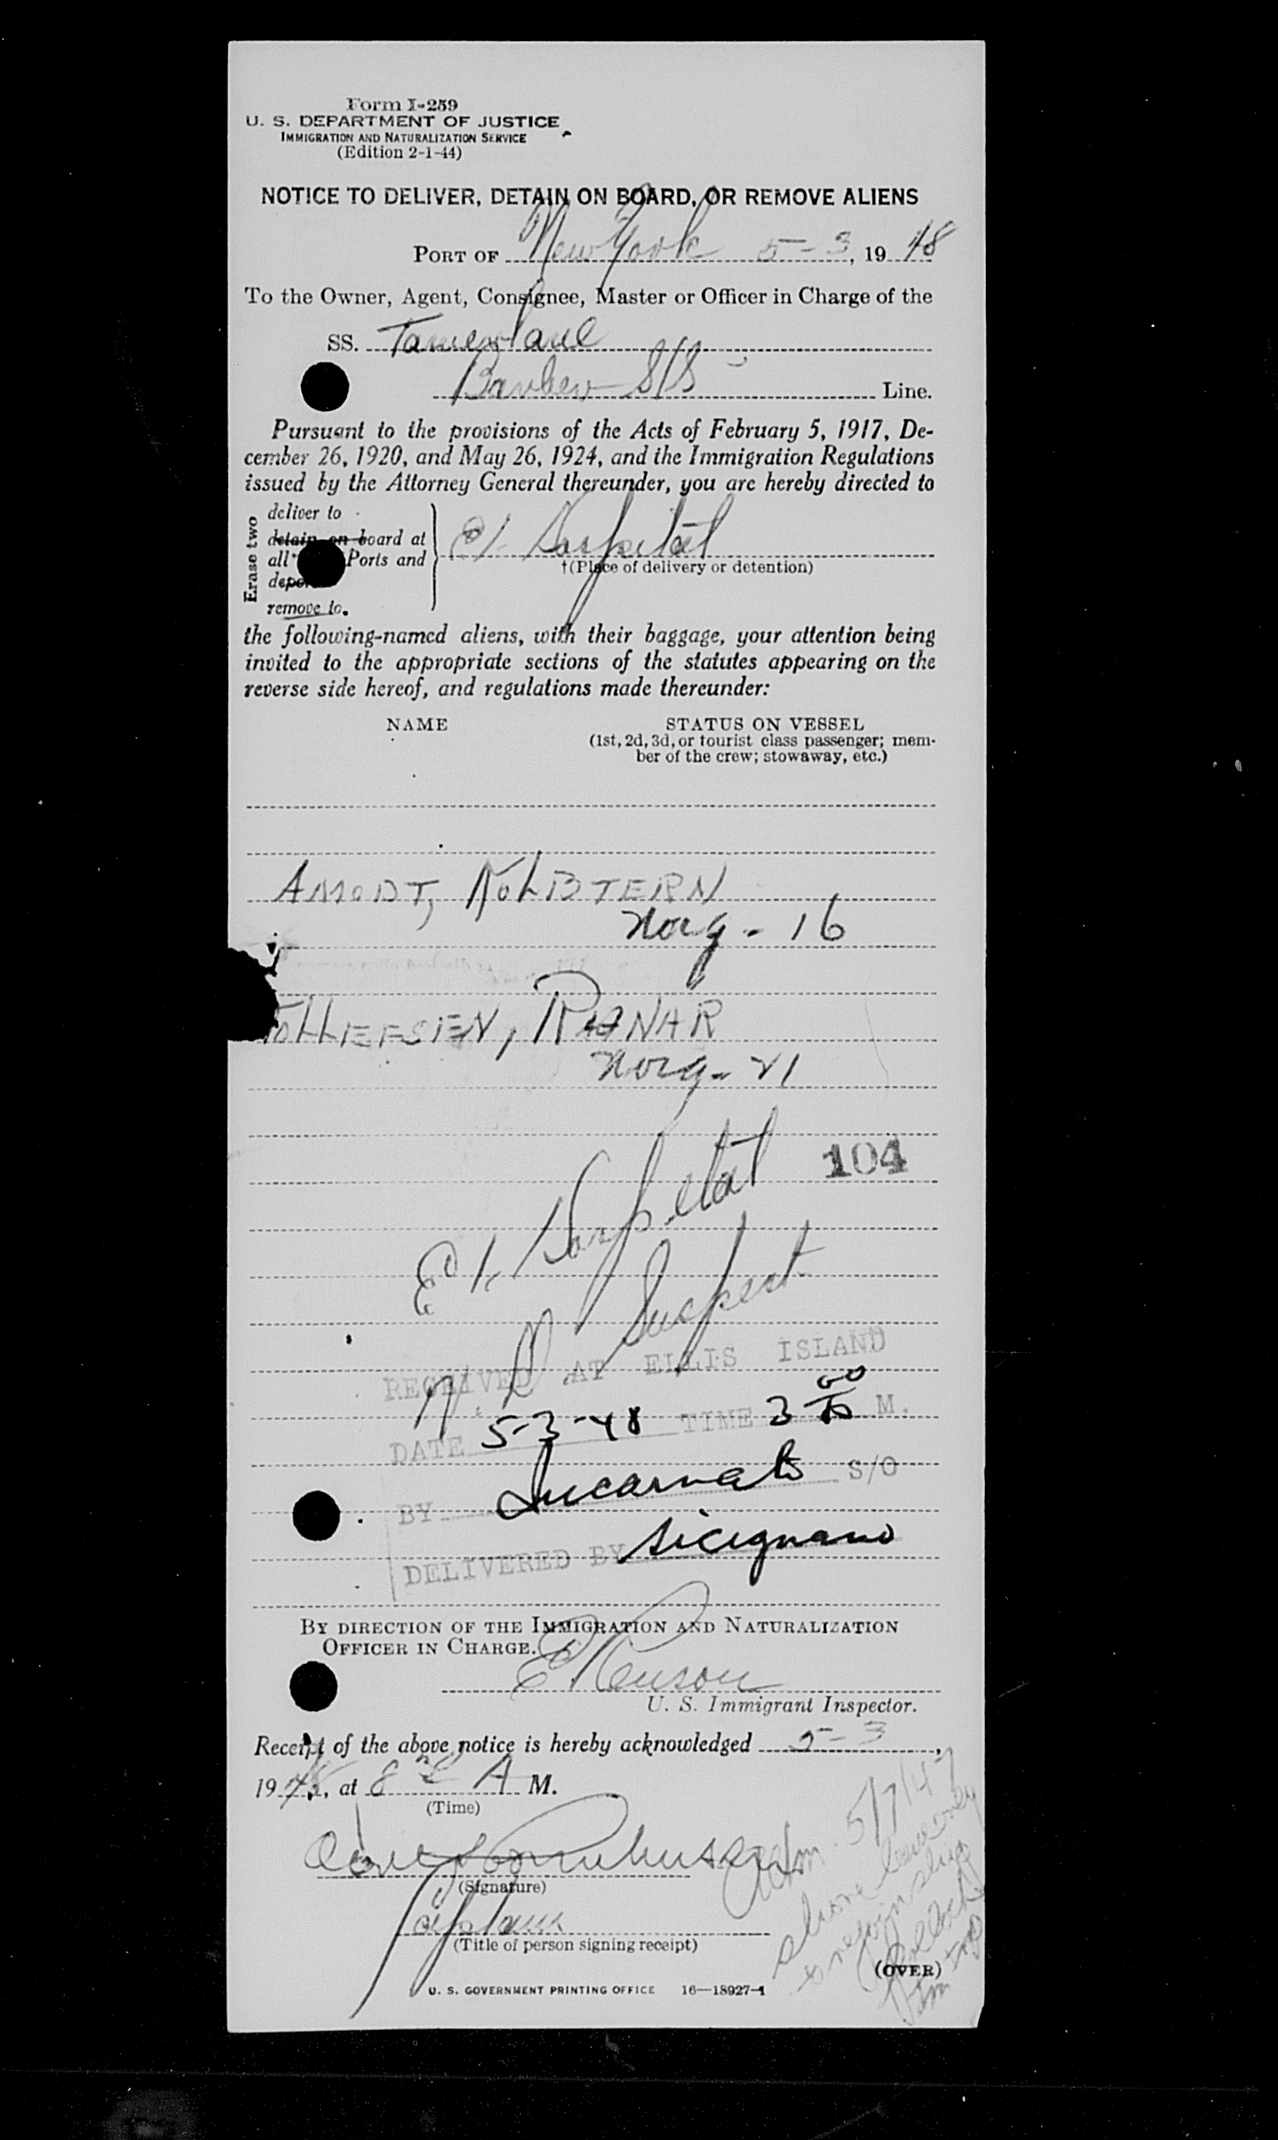 Form I-259
U. S. DEPARTMENT OF JUSTICE
IMMIGRATION AND NATURALIZATION SERVICE
(Edition 2-1-44)
NOTICE TO DELIVER, DETAIN ON BOARD, OR REMOVE ALIENS
PORT OF New York 5-3, 1948
To the Owner, Agent, Consignee, Master or Officer in Charge of the
SS. Tamerlane
Barber S/S Line.
Pursuant to the provisions of the Acts of February 5, 1917, De-
cember 26, 1920, and May 26, 1924, and the Immigration Regulations
issued by the Attorney General thereunder, you are hereby directed to
Erase two
deliver to
detain on board at
all Ports and
remove to.
EI Hospital
†(Place of delivery or detention)
the following-named aliens, with their baggage, your attention being
invited to the appropriate sections of the statutes appearing on the
reverse side hereof, and regulations made thereunder:
NAME STATUS ON VESSEL
(1st, 2d, 3d, or tourist class passenger; mem-
ber of the crew; stowaway, etc.)
AMODT, KOLBTERN
Norg - 16
TOLLEFSEN, RAGNAR
Norg - 21
104
EI Hospital
V. D. Suspect
RECEIVED AT ELLIS ISLAND
DATE 5-3-48 TIME 3 00 M.
BY Incarnato S/O
DELIVERED BY Sicignano
BY DIRECTION OF THE IMMIGRATION AND NATURALIZATION
OFFICER IN CHARGE.
U. S. Immigrant Inspector.
Receipt of the above notice is hereby acknowledged 5-3,
1948, at 8 A M.
(Time)
(Signature)
Captain
(Title of person signing receipt)
Adm. 5/7/47
shore leave only
to rejoin ship
(OVER)
U. S. GOVERNMENT PRINTING OFFICE 16—18927-1